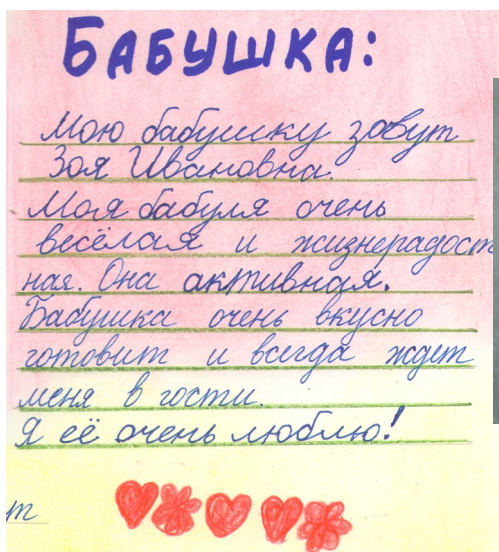 БАБУШКА:
Мою бабушку зовут
Зоя Ивановна.
Моя бабуля очень
весёлая и жизнерадост
ная. Она активная.
Бабушка очень вкусно
готовит и всегда ждет
меня в гости.
Я её очень люблю!
т